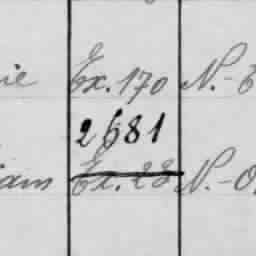 ie Ex. 170 N.-
2681
am Ex. 22 N.-O.